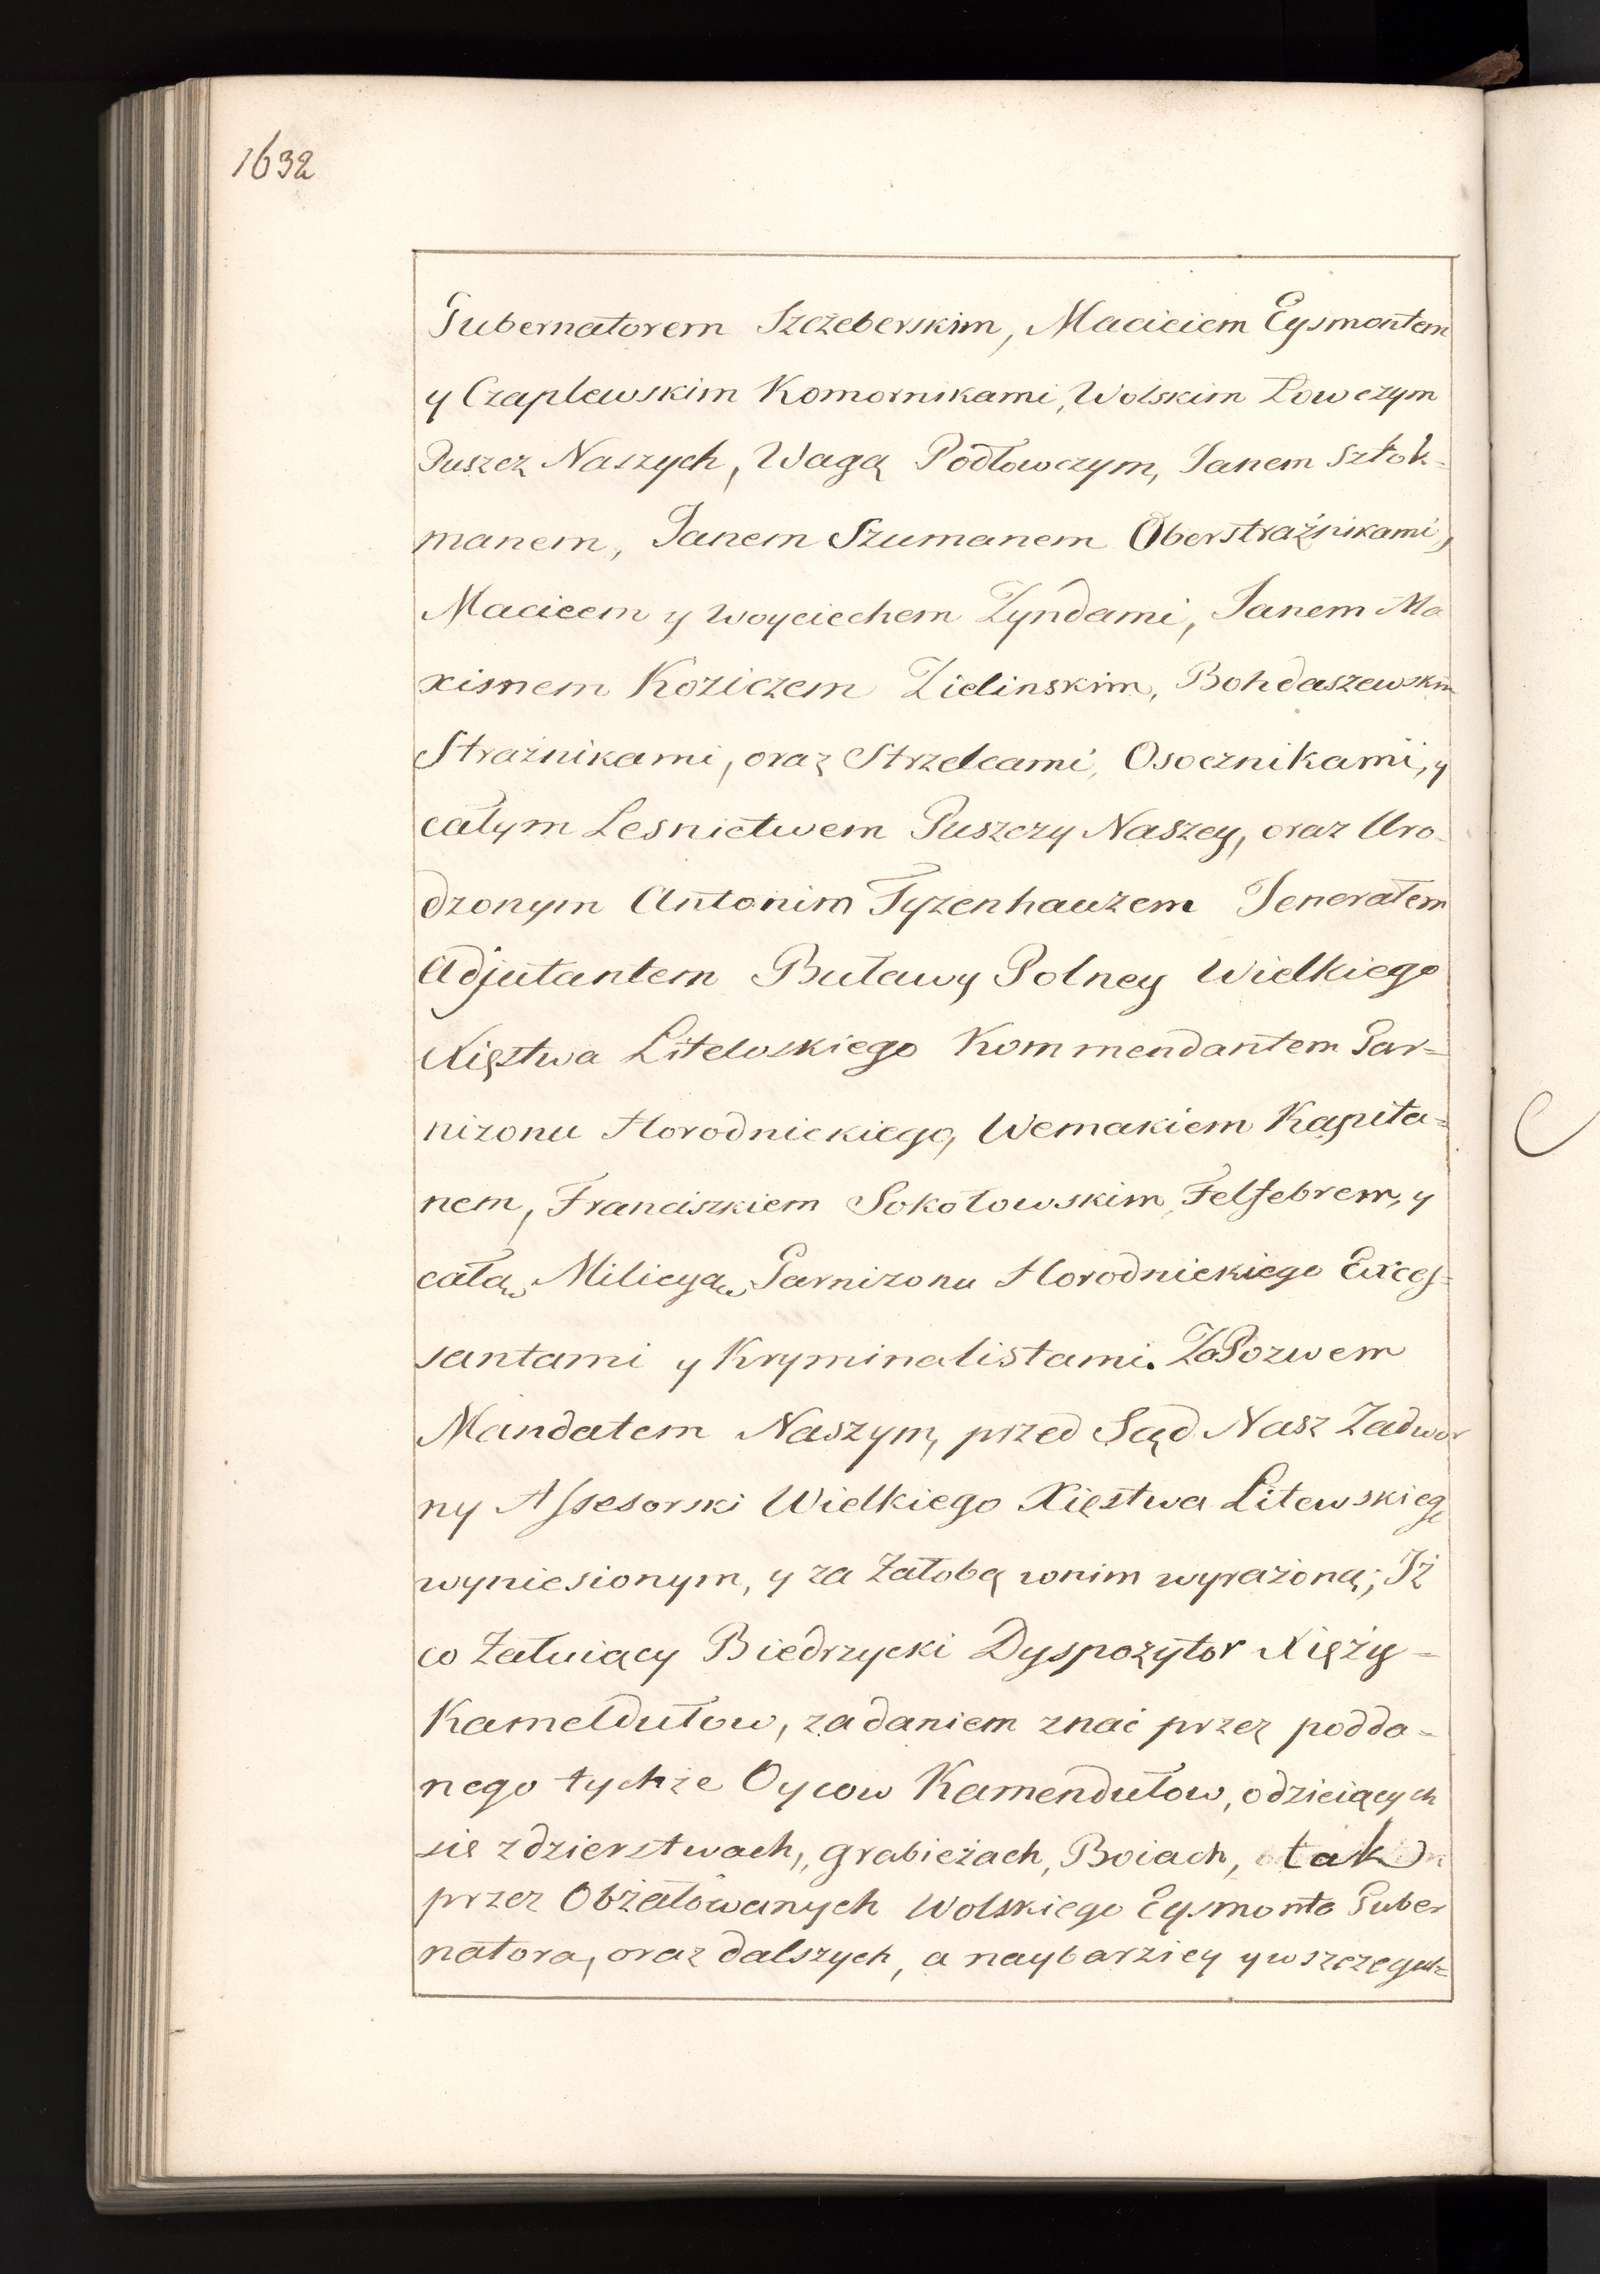 1632
Gubernatorem Szczeberskim, Macieiem Eysmontem
y Czaplewskim Komornikami, Wolskim Łowczym
Puszcz Naszych, Wagą Podłowczym, Janem Sztok-
manem, Janem Szumanem Oberstrażnikami,
Macieem y Woyciechem Zyndami, Janem Ma
ximem Koziczem Zielinskim, Bohdaszewskim
Strażnikami, oraz Strzelcami, Osocznikami, y
całym Lesnictwem Puszczy Naszey, oraz Uro-
dzonym Antonim Tyzenhauzem Jenerałem
Adjutantem Buławy Polney Wielkiego
Xięstwa Litewskiego Kommendantem Gar=
nizonu Horodnickiego, Wemakiem Kapita=
nem, Franciszkiem Sokołowskim, Felfebrem, y
całą Milicyą Garnizonu Horodnickiego Exces=
santami y Kryminalistami. Za Pozwem
Mandatem Naszym, przed Sąd Nasz Zadwor
ny Assesorski Wielkiego Xięstwa Litewskiego
wyniesionym, y za Żałobą wnim wyrażoną; Iż
co Żałuiący Biedrzycki Dyspozytor Xięży -
Kamedułow, zadaniem znać przez podda=
nego tychże Oycow Kamendułow, odzieiących
sie zdzierstwach, grabieżach, Boiach, tak
przez Obżałowanych Wolskiego Eysmonta Guber
natora, oraz dalszych, a naybarziey ywszczegul=